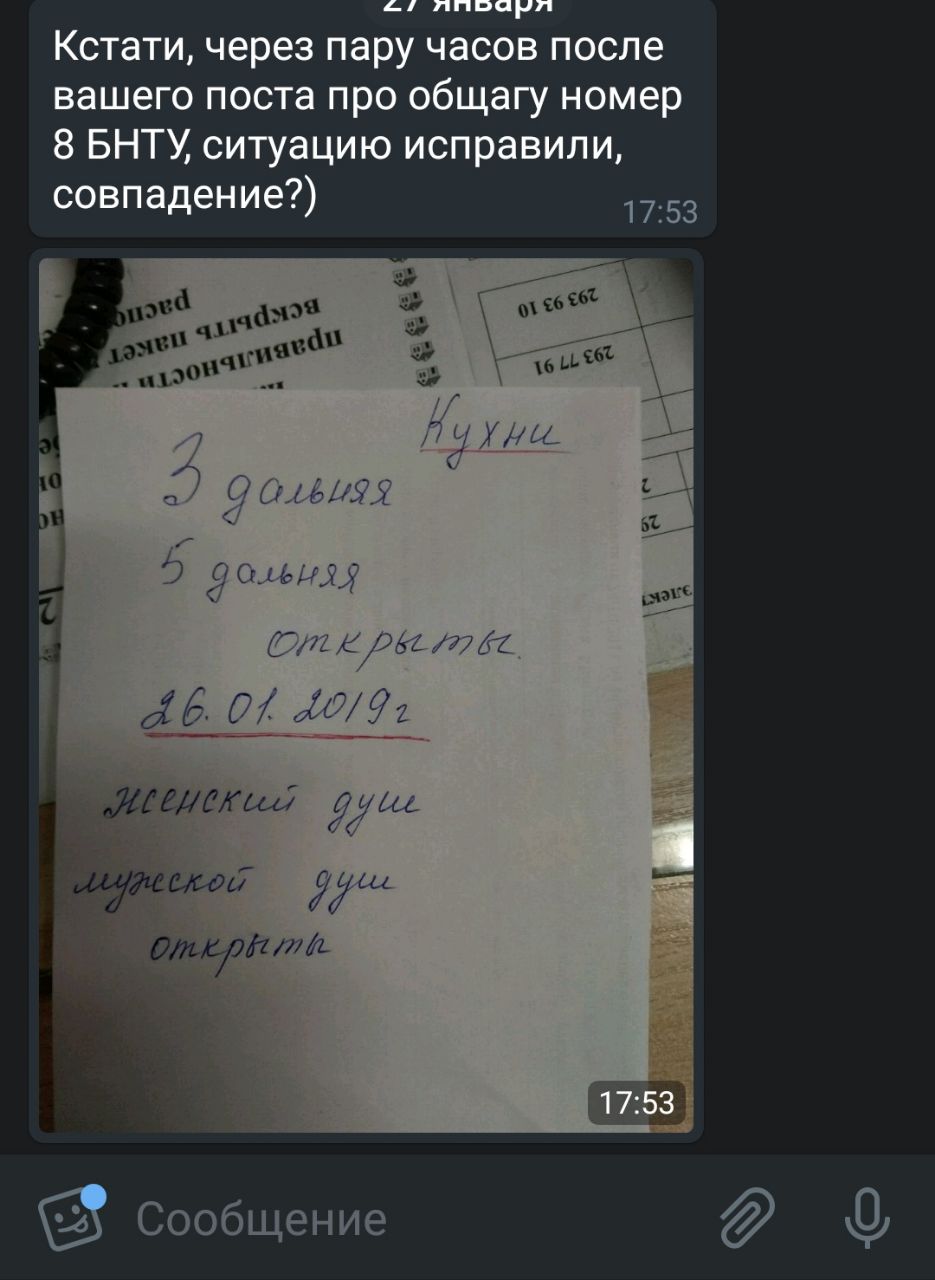 27 января
Кстати, через пару часов после
вашего поста про общагу номер
8 БНТУ, ситуацию исправили,
совпадение?)
17:53
распо
вскрыть пакет
правильности
293 93 10
293 77 91
Кухни
3 дальняя
5 дальняя
открыты.
26.01.2019г
женский душ
мужской душ
открыты
17:53
Сообщение